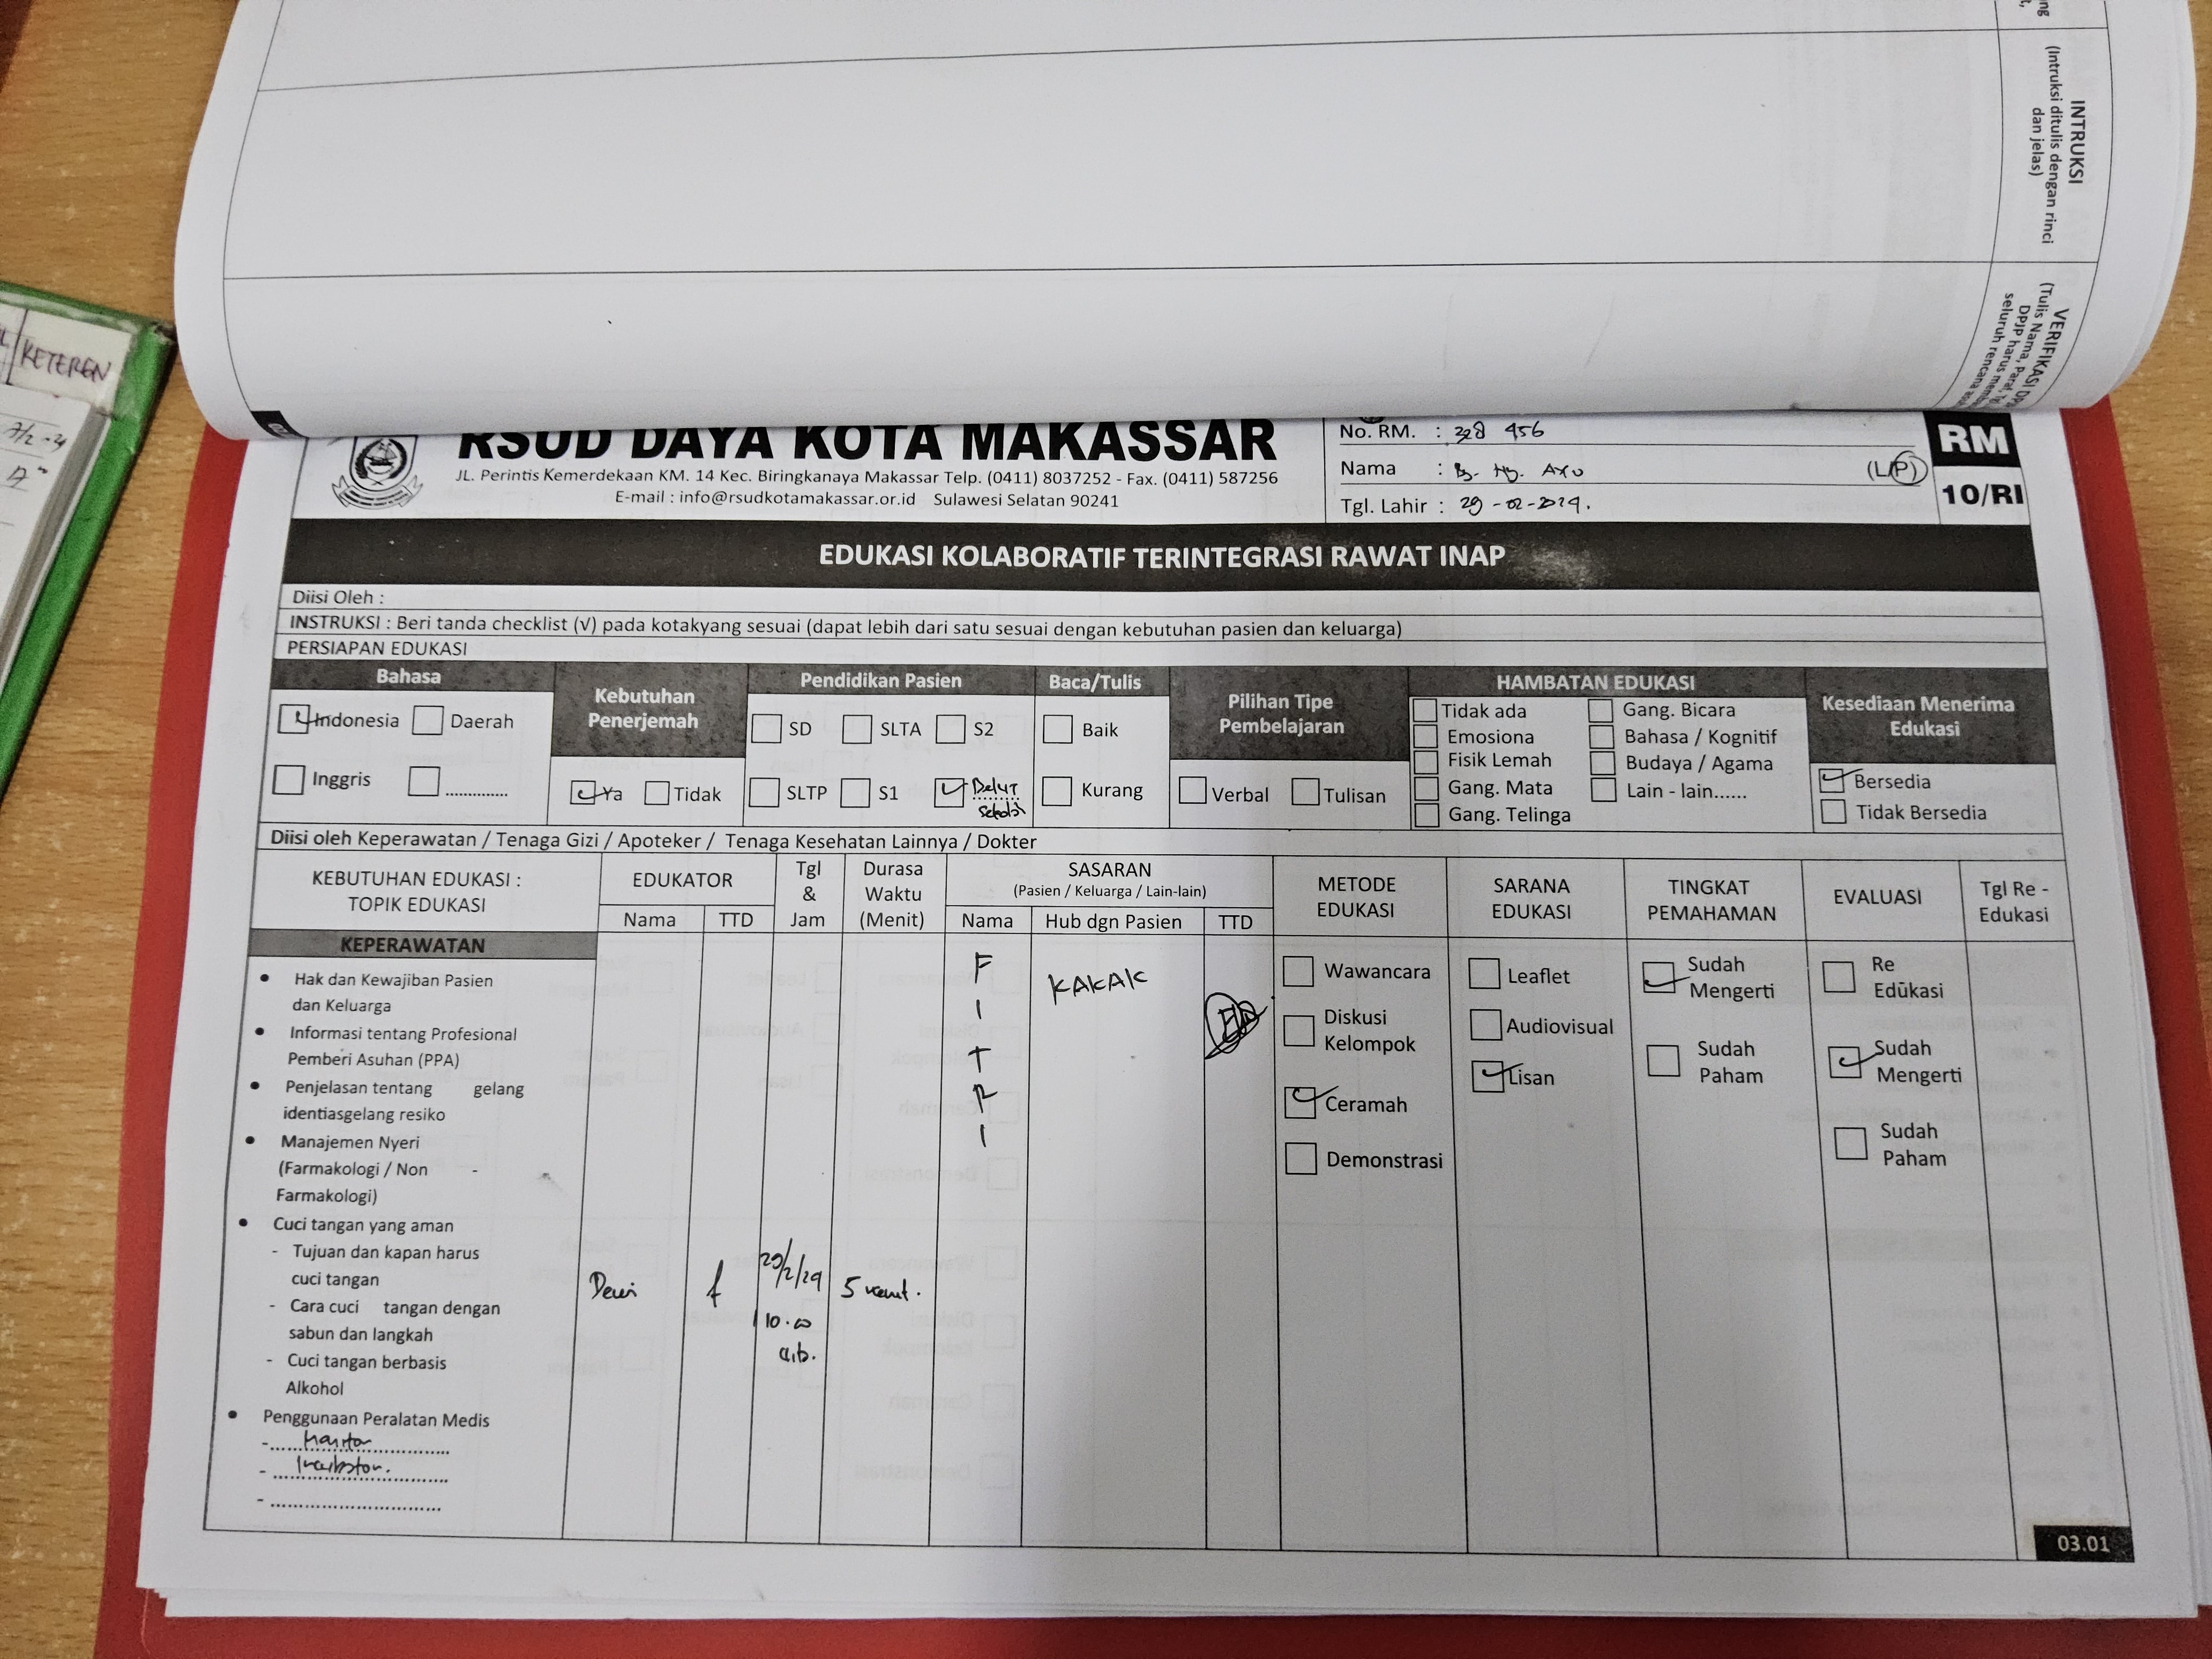 INTRUKSI
(Intruksi ditulis dengan rinci
dan jelas)
(Tulis Nama, Paraf, Tgl
DPJP harus
seluruh rencana
KETEREN
RSUD DAYA KOTA MAKASSAR
JL. Perintis Kemerdekaan KM. 14 Kec. Biringkanaya Makassar Telp. (0411) 8037252 - Fax. (0411) 587256
E-mail : info@rsudkotamakassar.or.id Sulawesi Selatan 90241
No. RM. : 328 456
Nama : By. Ny. Ayu (L/P)
Tgl. Lahir : 29 - 02 - 2024.
RM
10/RI
EDUKASI KOLABORATIF TERINTEGRASI RAWAT INAP
Diisi Oleh :
INSTRUKSI : Beri tanda checklist (√) pada kotakyang sesuai (dapat lebih dari satu sesuai dengan kebutuhan pasien dan keluarga)
PERSIAPAN EDUKASI
Bahasa
Indonesia Daerah
Inggris .............
Kebutuhan
Penerjemah
Ya Tidak
Pendidikan Pasien
SD SLTA S2
SLTP S1 Belum
sekolah
Baca/Tulis
Baik
Kurang
Pilihan Tipe
Pembelajaran
Verbal Tulisan
HAMBATAN EDUKASI
Tidak ada Gang. Bicara
Emosiona Bahasa / Kognitif
Fisik Lemah Budaya / Agama
Gang. Mata Lain - lain......
Gang. Telinga
Kesediaan Menerima
Edukasi
Bersedia
Tidak Bersedia
Diisi oleh Keperawatan / Tenaga Gizi / Apoteker / Tenaga Kesehatan Lainnya / Dokter
KEBUTUHAN EDUKASI :
TOPIK EDUKASI
EDUKATOR
Nama TTD
Tgl
&
Jam
Durasa
Waktu
(Menit)
SASARAN
(Pasien / Keluarga / Lain-lain)
Nama Hub dgn Pasien TTD
METODE
EDUKASI
SARANA
EDUKASI
TINGKAT
PEMAHAMAN
EVALUASI
Tgl Re -
Edukasi
KEPERAWATAN
• Hak dan Kewajiban Pasien
dan Keluarga
• Informasi tentang Profesional
Pemberi Asuhan (PPA)
• Penjelasan tentang gelang
identiasgelang resiko
• Manajemen Nyeri
(Farmakologi / Non -
Farmakologi)
• Cuci tangan yang aman
- Tujuan dan kapan harus
cuci tangan
- Cara cuci tangan dengan
sabun dan langkah
- Cuci tangan berbasis
Alkohol
• Penggunaan Peralatan Medis
- Monitor
- Incubator.
- ................................
Dewi
29/2/24
10.00
5 menit.
F
I
T
R
I
KAKAK
Wawancara
Diskusi
Kelompok
Ceramah
Demonstrasi
Leaflet
Audiovisual
Lisan
Sudah
Mengerti
Sudah
Paham
Re
Edukasi
Sudah
Mengerti
Sudah
Paham
03.01